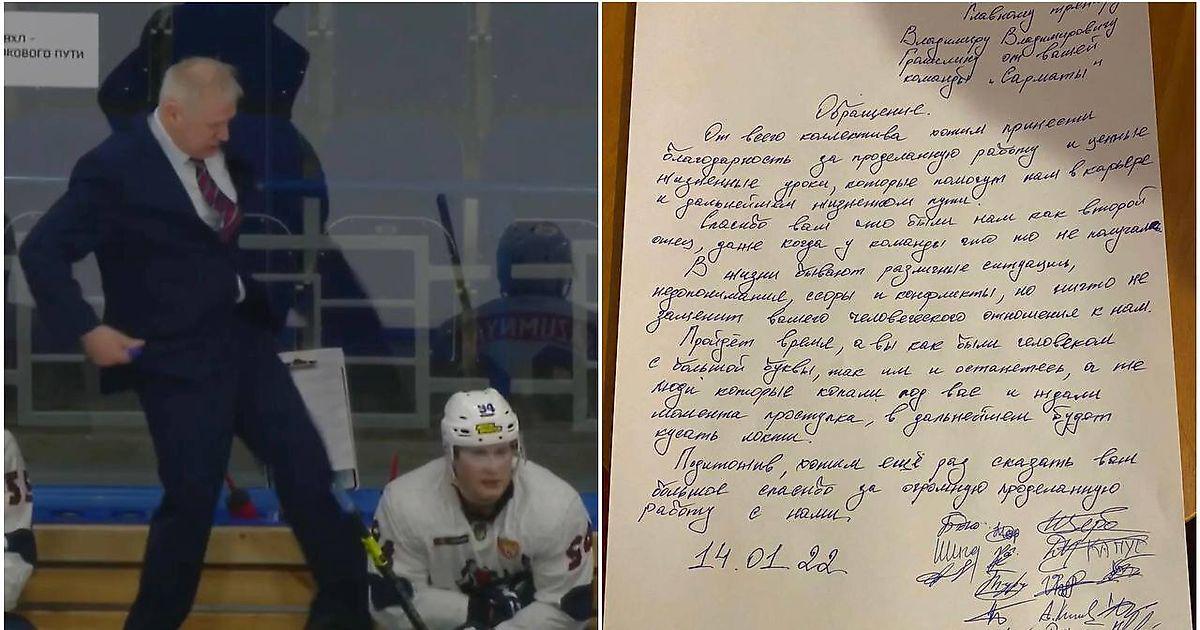 ВХЛ -
КОВОГО ПУТИ
ZUMNY
94
Главному
Владимиру Владимировичу
от вашей
команды "Сарматы"
Обращение.
От всего коллектива хотим принести
благодарность за проделанную работу и ценные
жизненные уроки, которые помогут нам в карьере
и дальнейшем жизненном пути.
Спасибо вам что были нам как второй
отец, даже когда у команды что то не получалось
В жизни бывают различные ситуации,
недопонимание, ссоры и конфликты, но ничто не
заменит вашего человеческого отношения к нам.
Пройдёт время, а вы как были человеком
с большой буквы, так им и останетесь, а те
люди которые копали под вас и ждали
момента проступка, в дальнейшем будут
кусать локти.
Подитожив, хотим ещё раз сказать вам
большое спасибо за огромную проделанную
работу с нами.
14.01.22
КАПУС